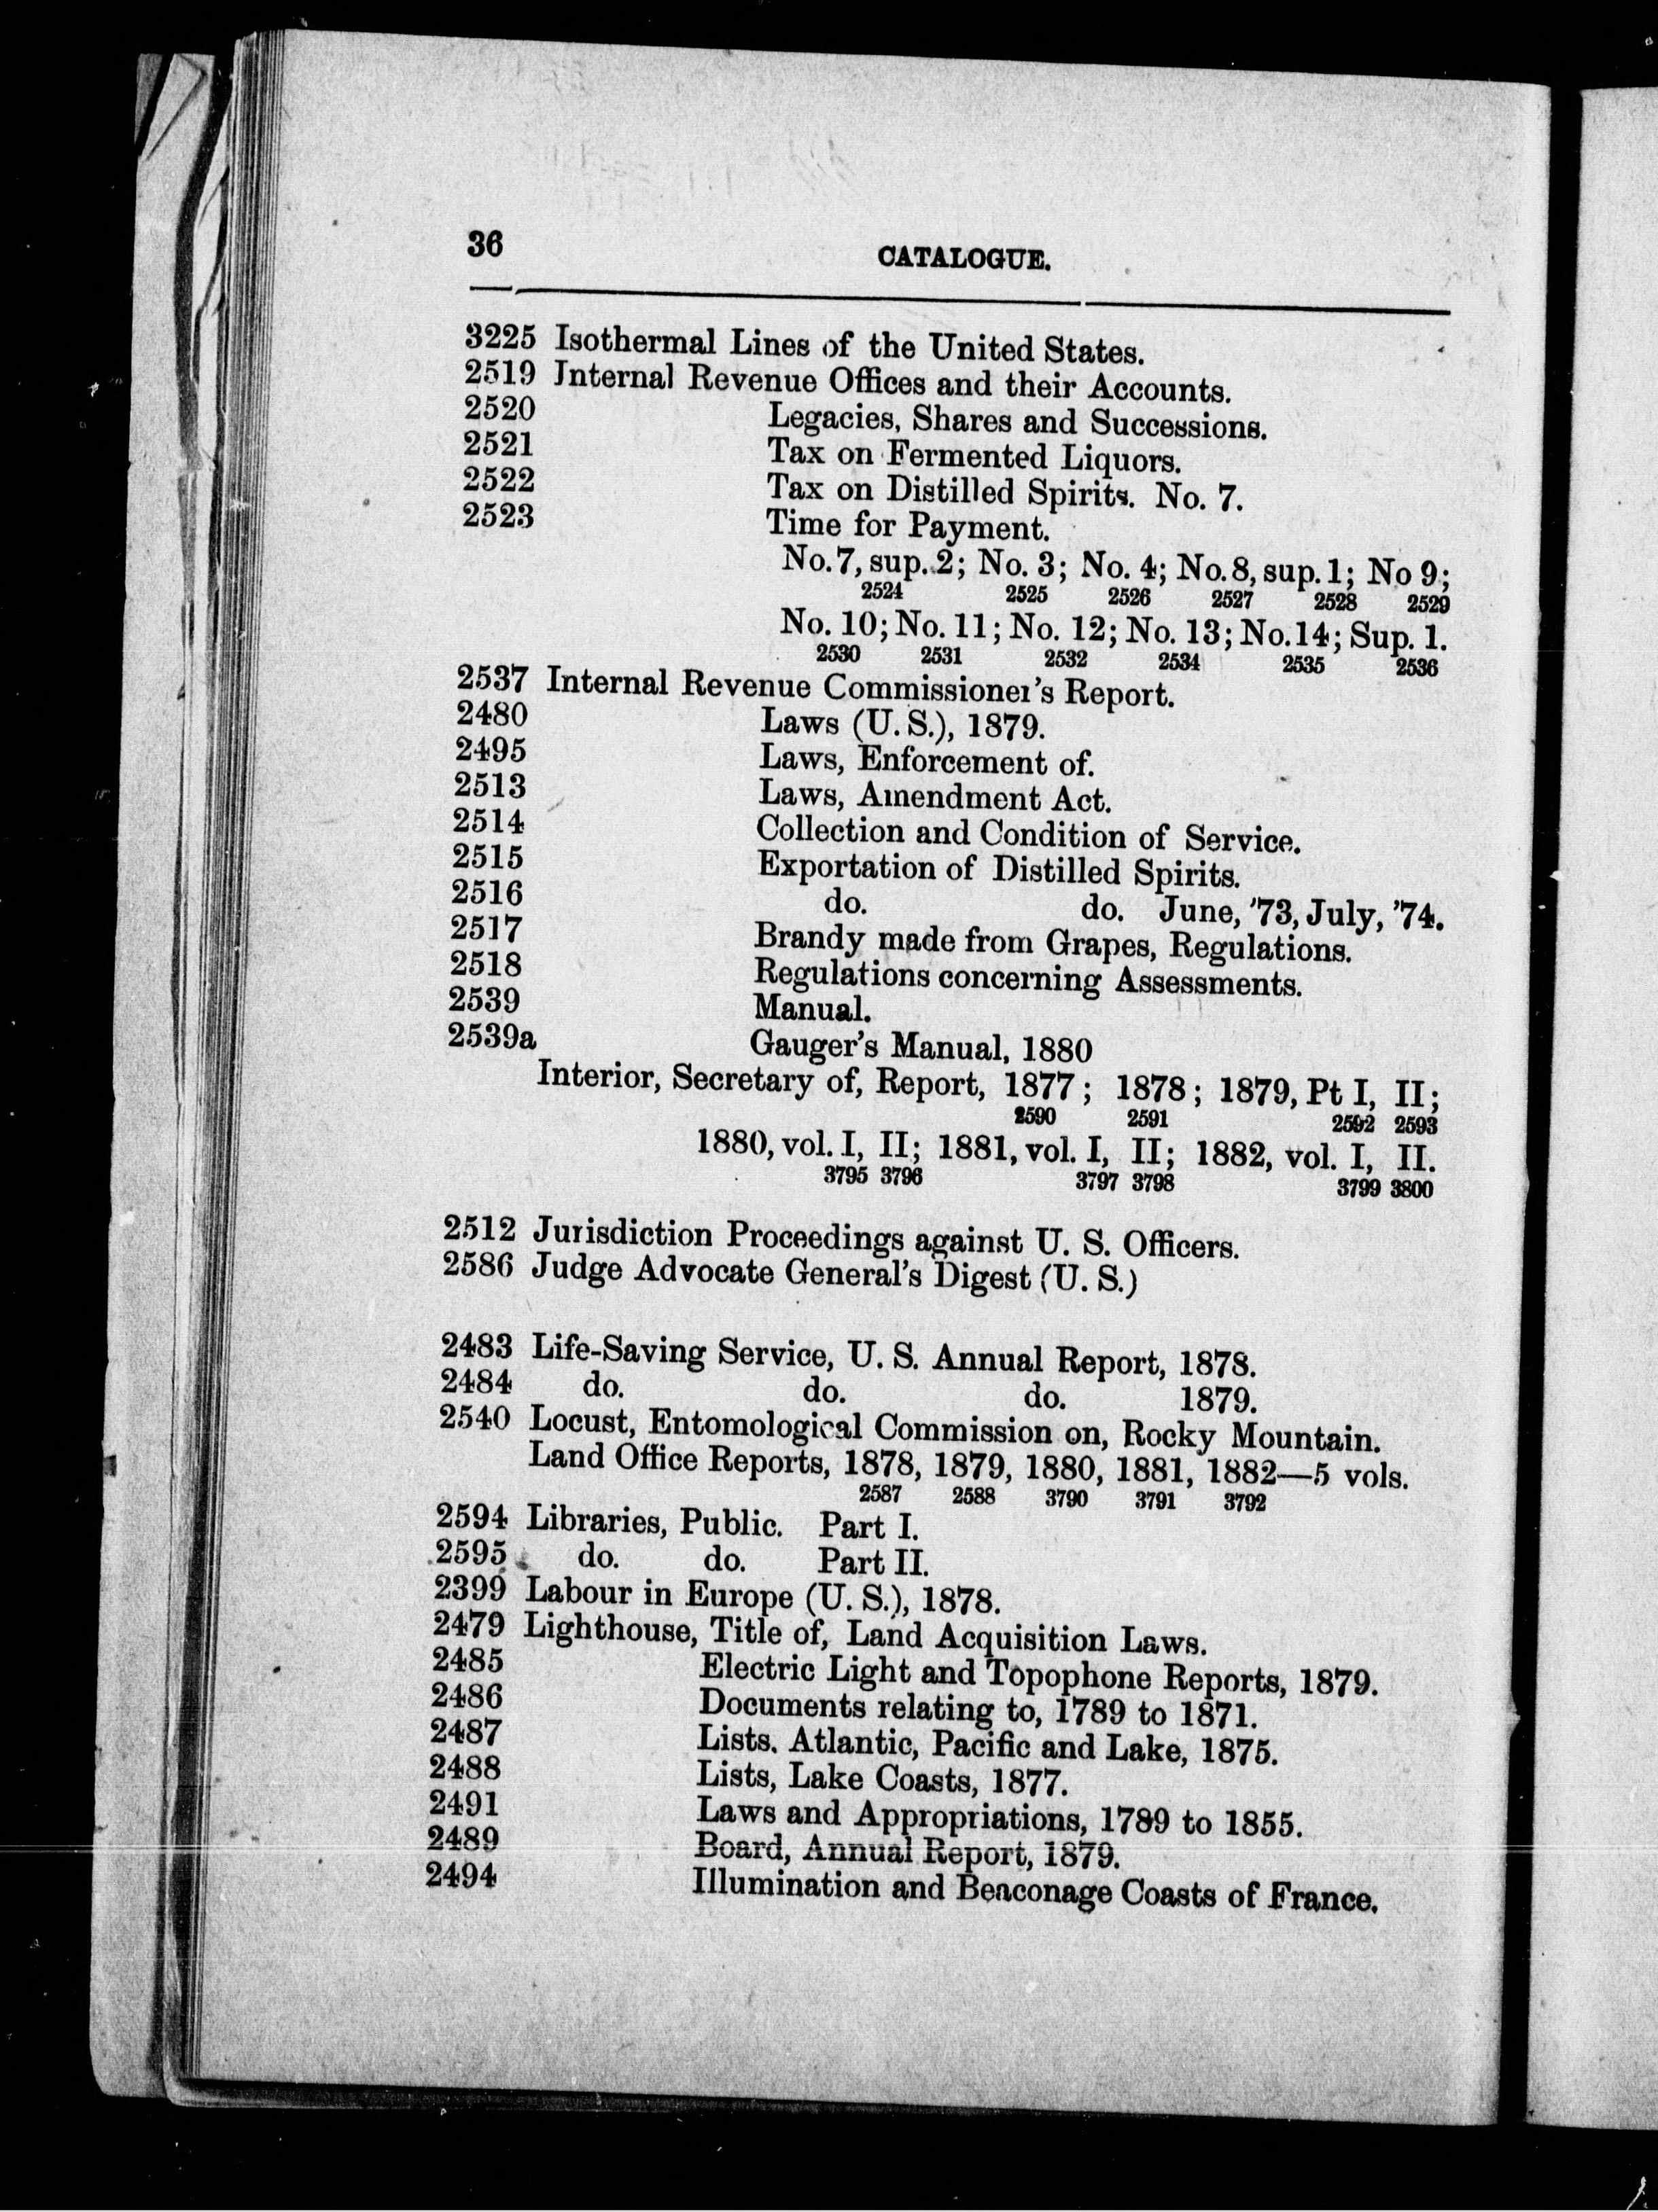 36
CATALOGUE.
3225 Isothermal Lines of the United States.
2519 Internal Revenue Offices and their Accounts.
2520 Legacies, Shares and Successions.
2521 Tax on Fermented Liquors.
2522 Tax on Distilled Spirits. No. 7.
2523 Time for Payment.
No. 7, sup. 2; No. 3; No. 4; No. 8, sup. 1; No 9;
2524 2525 2526 2527 2528 2529
No. 10; No. 11; No. 12; No. 13; No. 14; Sup. 1.
2530 2531 2532 2534 2535 2536
2537 Internal Revenue Commissioner's Report.
2480 Laws (U. S.), 1879.
2495 Laws, Enforcement of.
2513 Laws, Amendment Act.
2514 Collection and Condition of Service.
2515 Exportation of Distilled Spirits.
2516 do. do. June, '73, July, '74.
2517 Brandy made from Grapes, Regulations.
2518 Regulations concerning Assessments.
2539 Manual.
2539a Gauger's Manual, 1880
Interior, Secretary of, Report, 1877; 1878; 1879, Pt I, II;
2590 2591 2592 2593
1880, vol. I, II; 1881, vol. I, II; 1882, vol. I, II.
3795 3796 3797 3798 3799 3800
2512 Jurisdiction Proceedings against U. S. Officers.
2586 Judge Advocate General's Digest (U. S.)
2483 Life-Saving Service, U. S. Annual Report, 1878.
2484 do. do. do. 1879.
2540 Locust, Entomological Commission on, Rocky Mountain.
Land Office Reports, 1878, 1879, 1880, 1881, 1882—5 vols.
2587 2588 3790 3791 3792
2594 Libraries, Public. Part I.
2595 do. do. Part II.
2399 Labour in Europe (U. S.), 1878.
2479 Lighthouse, Title of, Land Acquisition Laws.
2485 Electric Light and Topophone Reports, 1879.
2486 Documents relating to, 1789 to 1871.
2487 Lists. Atlantic, Pacific and Lake, 1875.
2488 Lists, Lake Coasts, 1877.
2491 Laws and Appropriations, 1789 to 1855.
2489 Board, Annual Report, 1879.
2494 Illumination and Beaconage Coasts of France.